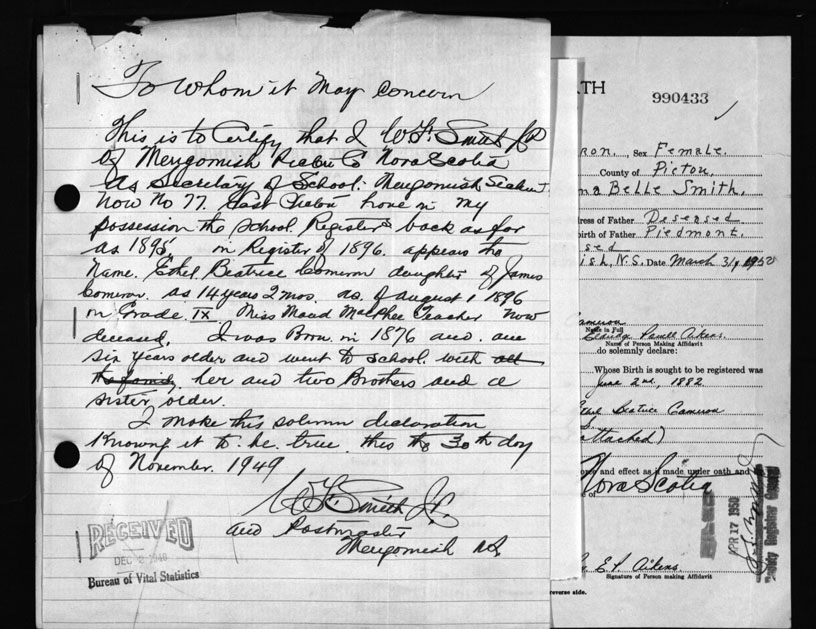 To Whom it May Concern
This is to Certify that I W F Smith JP
of Merigomish Pictou Co Nova Scotia
As Secretary of School: Merigomish Section
Now No 77. East Pictou have in my
possession the School Registers back as far
as 1895 in Register of 1896. appears the
Name. Ethel Beatrice Cameron daughter of James
Cameron. as 14 years 2 mos. as of August 1 1896
in Grade IX Miss Maud MacPhee Teacher Now
deceased, I was Born in 1876 and am
six years older and went to School with all
the family her and two Brothers and a
sister older.
I make this solemn declaration
Knowing it to be true this the 30th day
of November. 1949
W F Smith J.P.
and Postmaster
Merigomish NS
RECEIVED
DEC 2 1949
Bureau of Vital Statistics
TH
990433
ron, Sex Female.
County of Pictou,
na Belle Smith,
dress of Father Deseased
birth of Father Piedmont.
sed
ish, N.S. Date March 31, 1950
Cameron
Name in Full
Name of Person Making Affidavit
do solemnly declare:
Whose Birth is sought to be registered was
June 2nd, 1882
Ethel Beatrice Cameron
attached)
force and effect as if made under oath and
Nova Scotia
of
APR 17 1950
Deputy Registrar General
E P Aikens
Signature of Person making Affidavit
reverse side.